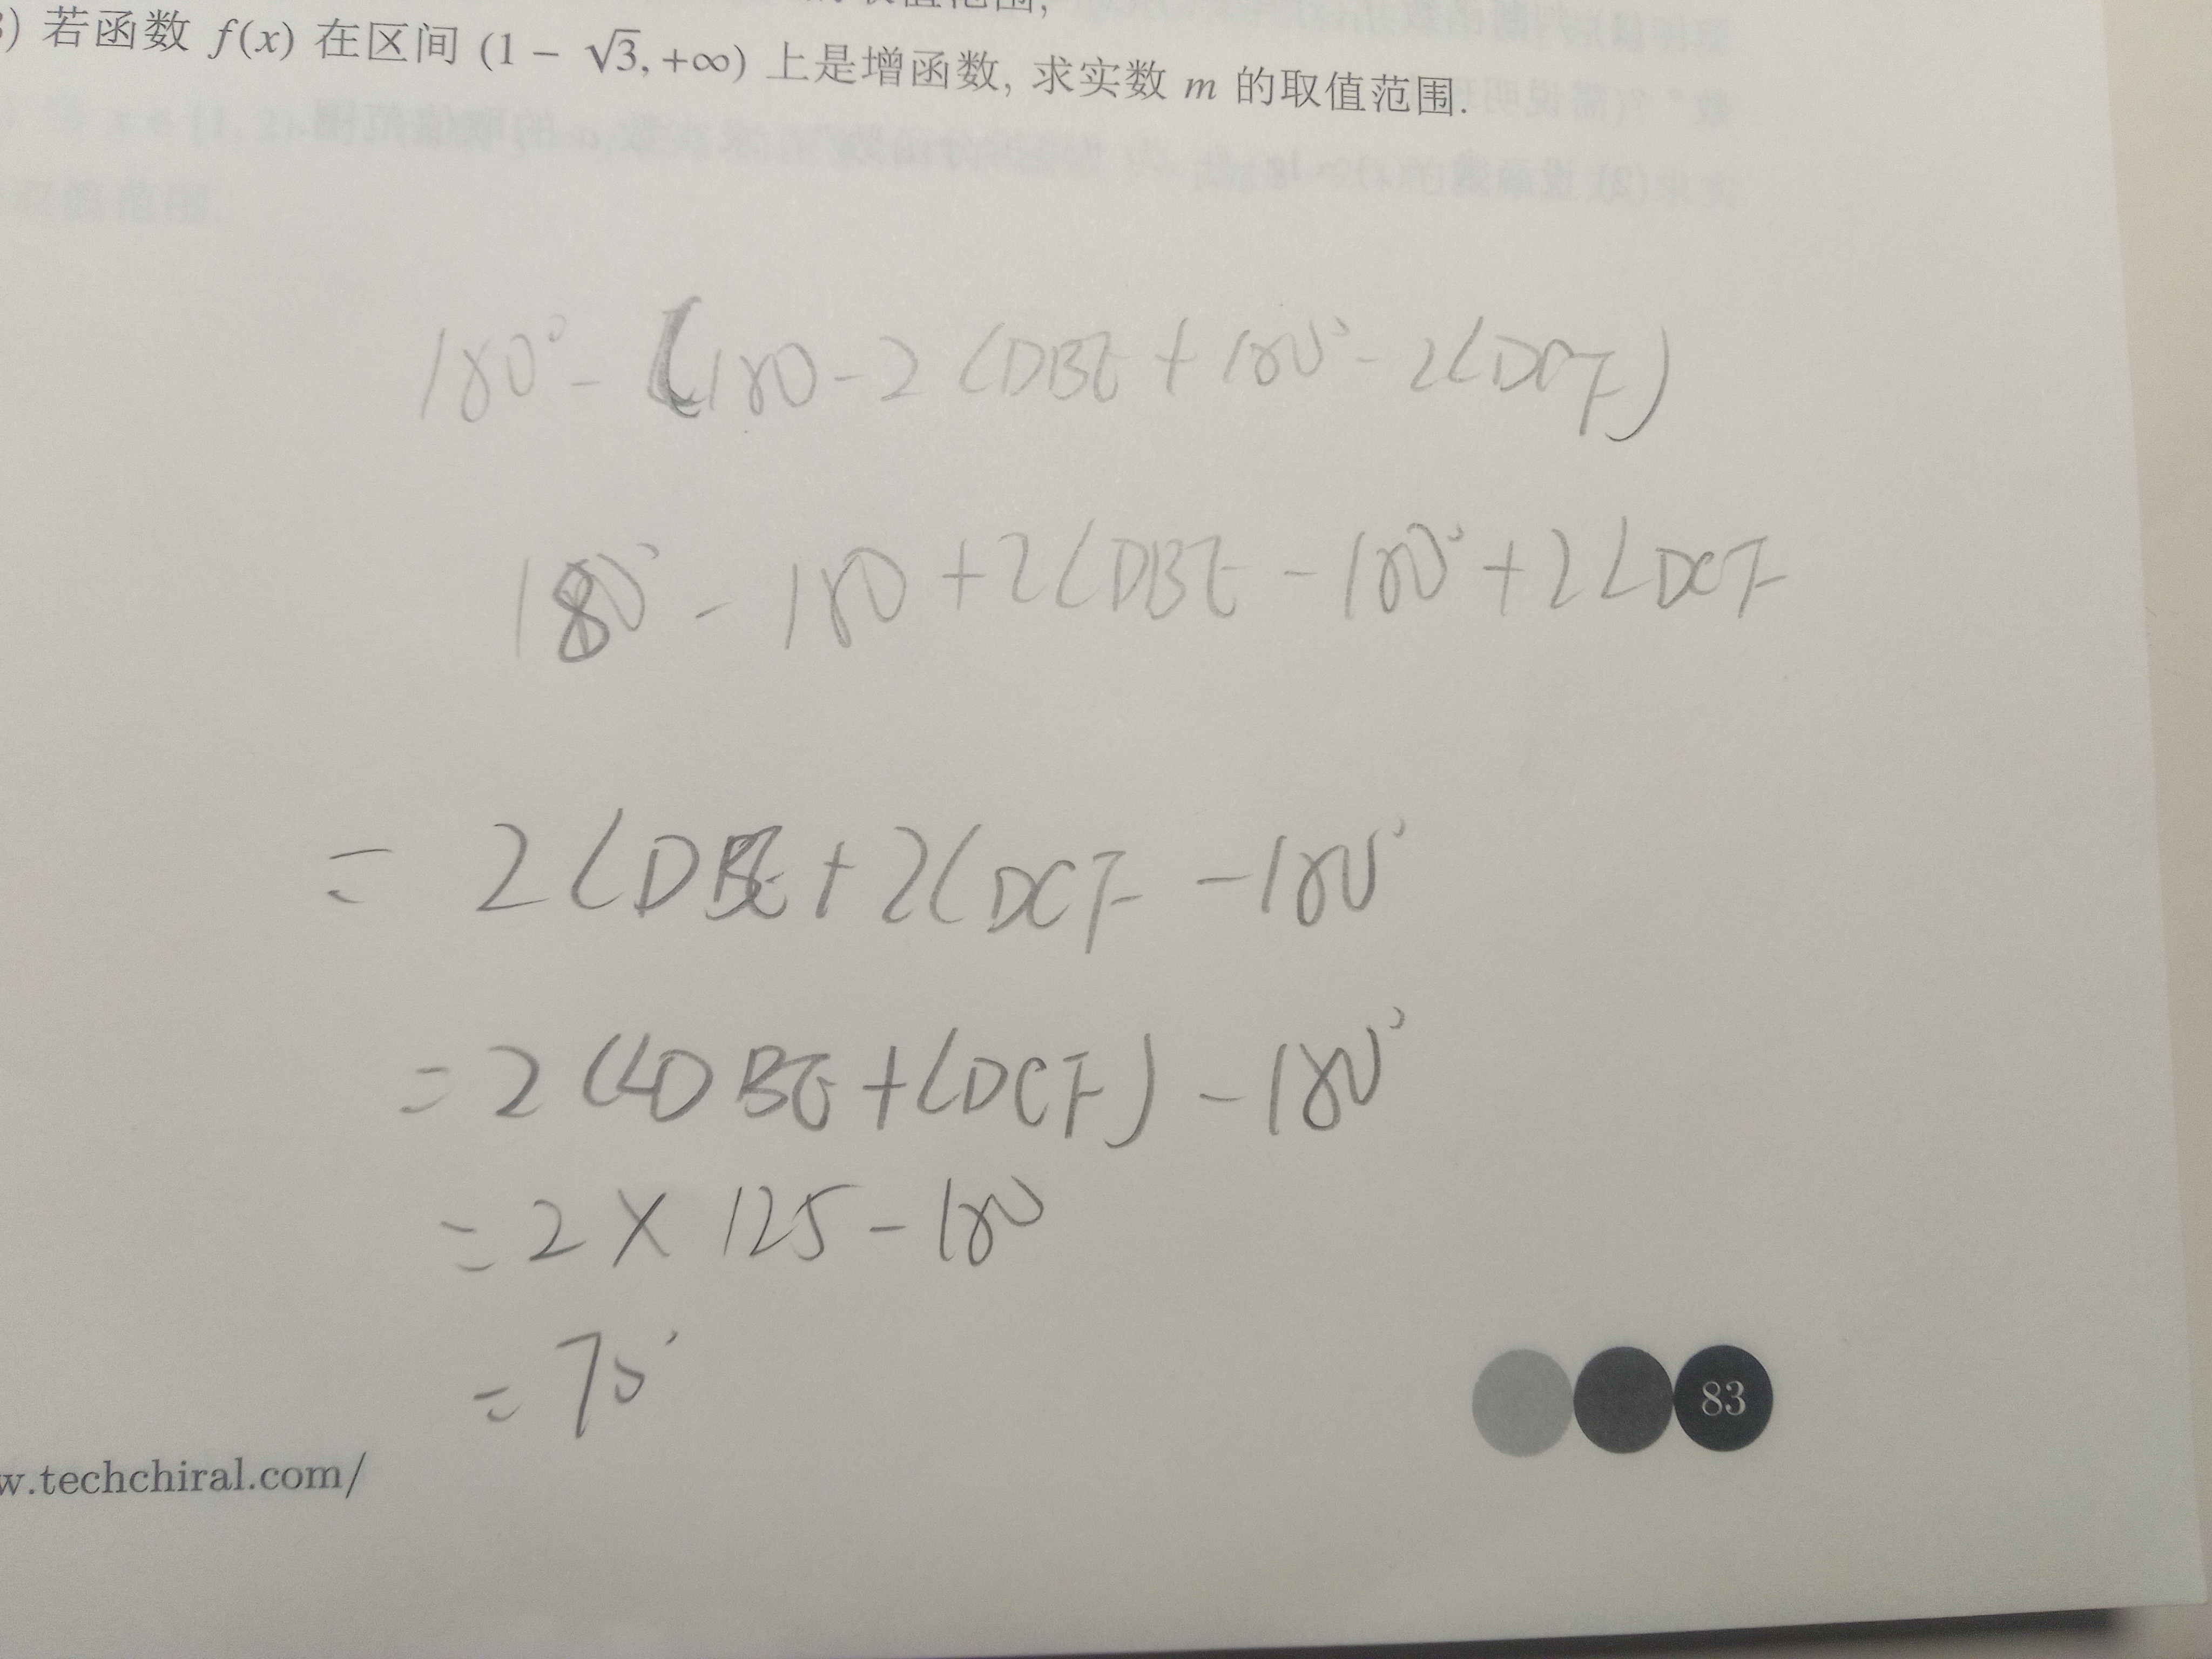 的取值范围;
3) 若函数 f(x) 在区间 (1 − √3, +∞) 上是增函数, 求实数 m 的取值范围.
180° - (180 - 2∠DBE + 180° - 2∠DCF)
180° - 180 + 2∠DBE - 180° + 2∠DCF
= 2∠DBE + 2∠DCF - 180°
= 2(∠DBE + ∠DCF) - 180°
= 2 × 125 - 180
= 70°
83
w.techchiral.com/